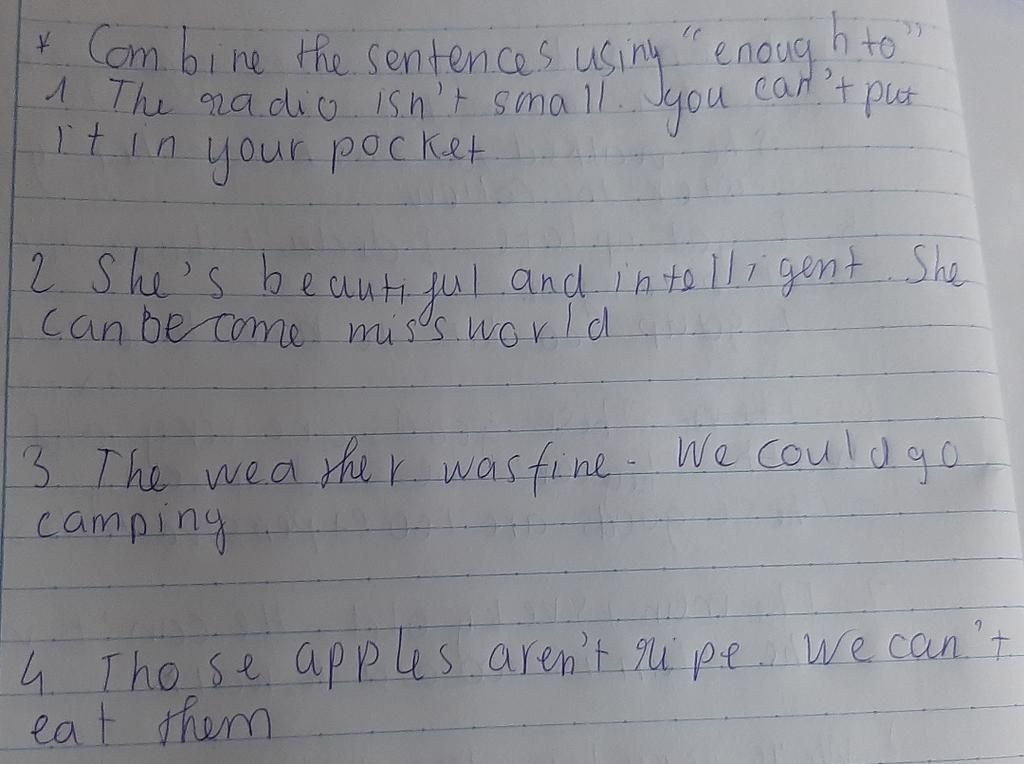 * Combine the sentences using "enough to"
1 The radio isn't small. you can't put
it in your pocket
2 She's beautiful and intelligent. She
can become miss world
3 The weather was fine. We could go
camping
4 Those apples aren't ripe. We can't
eat them